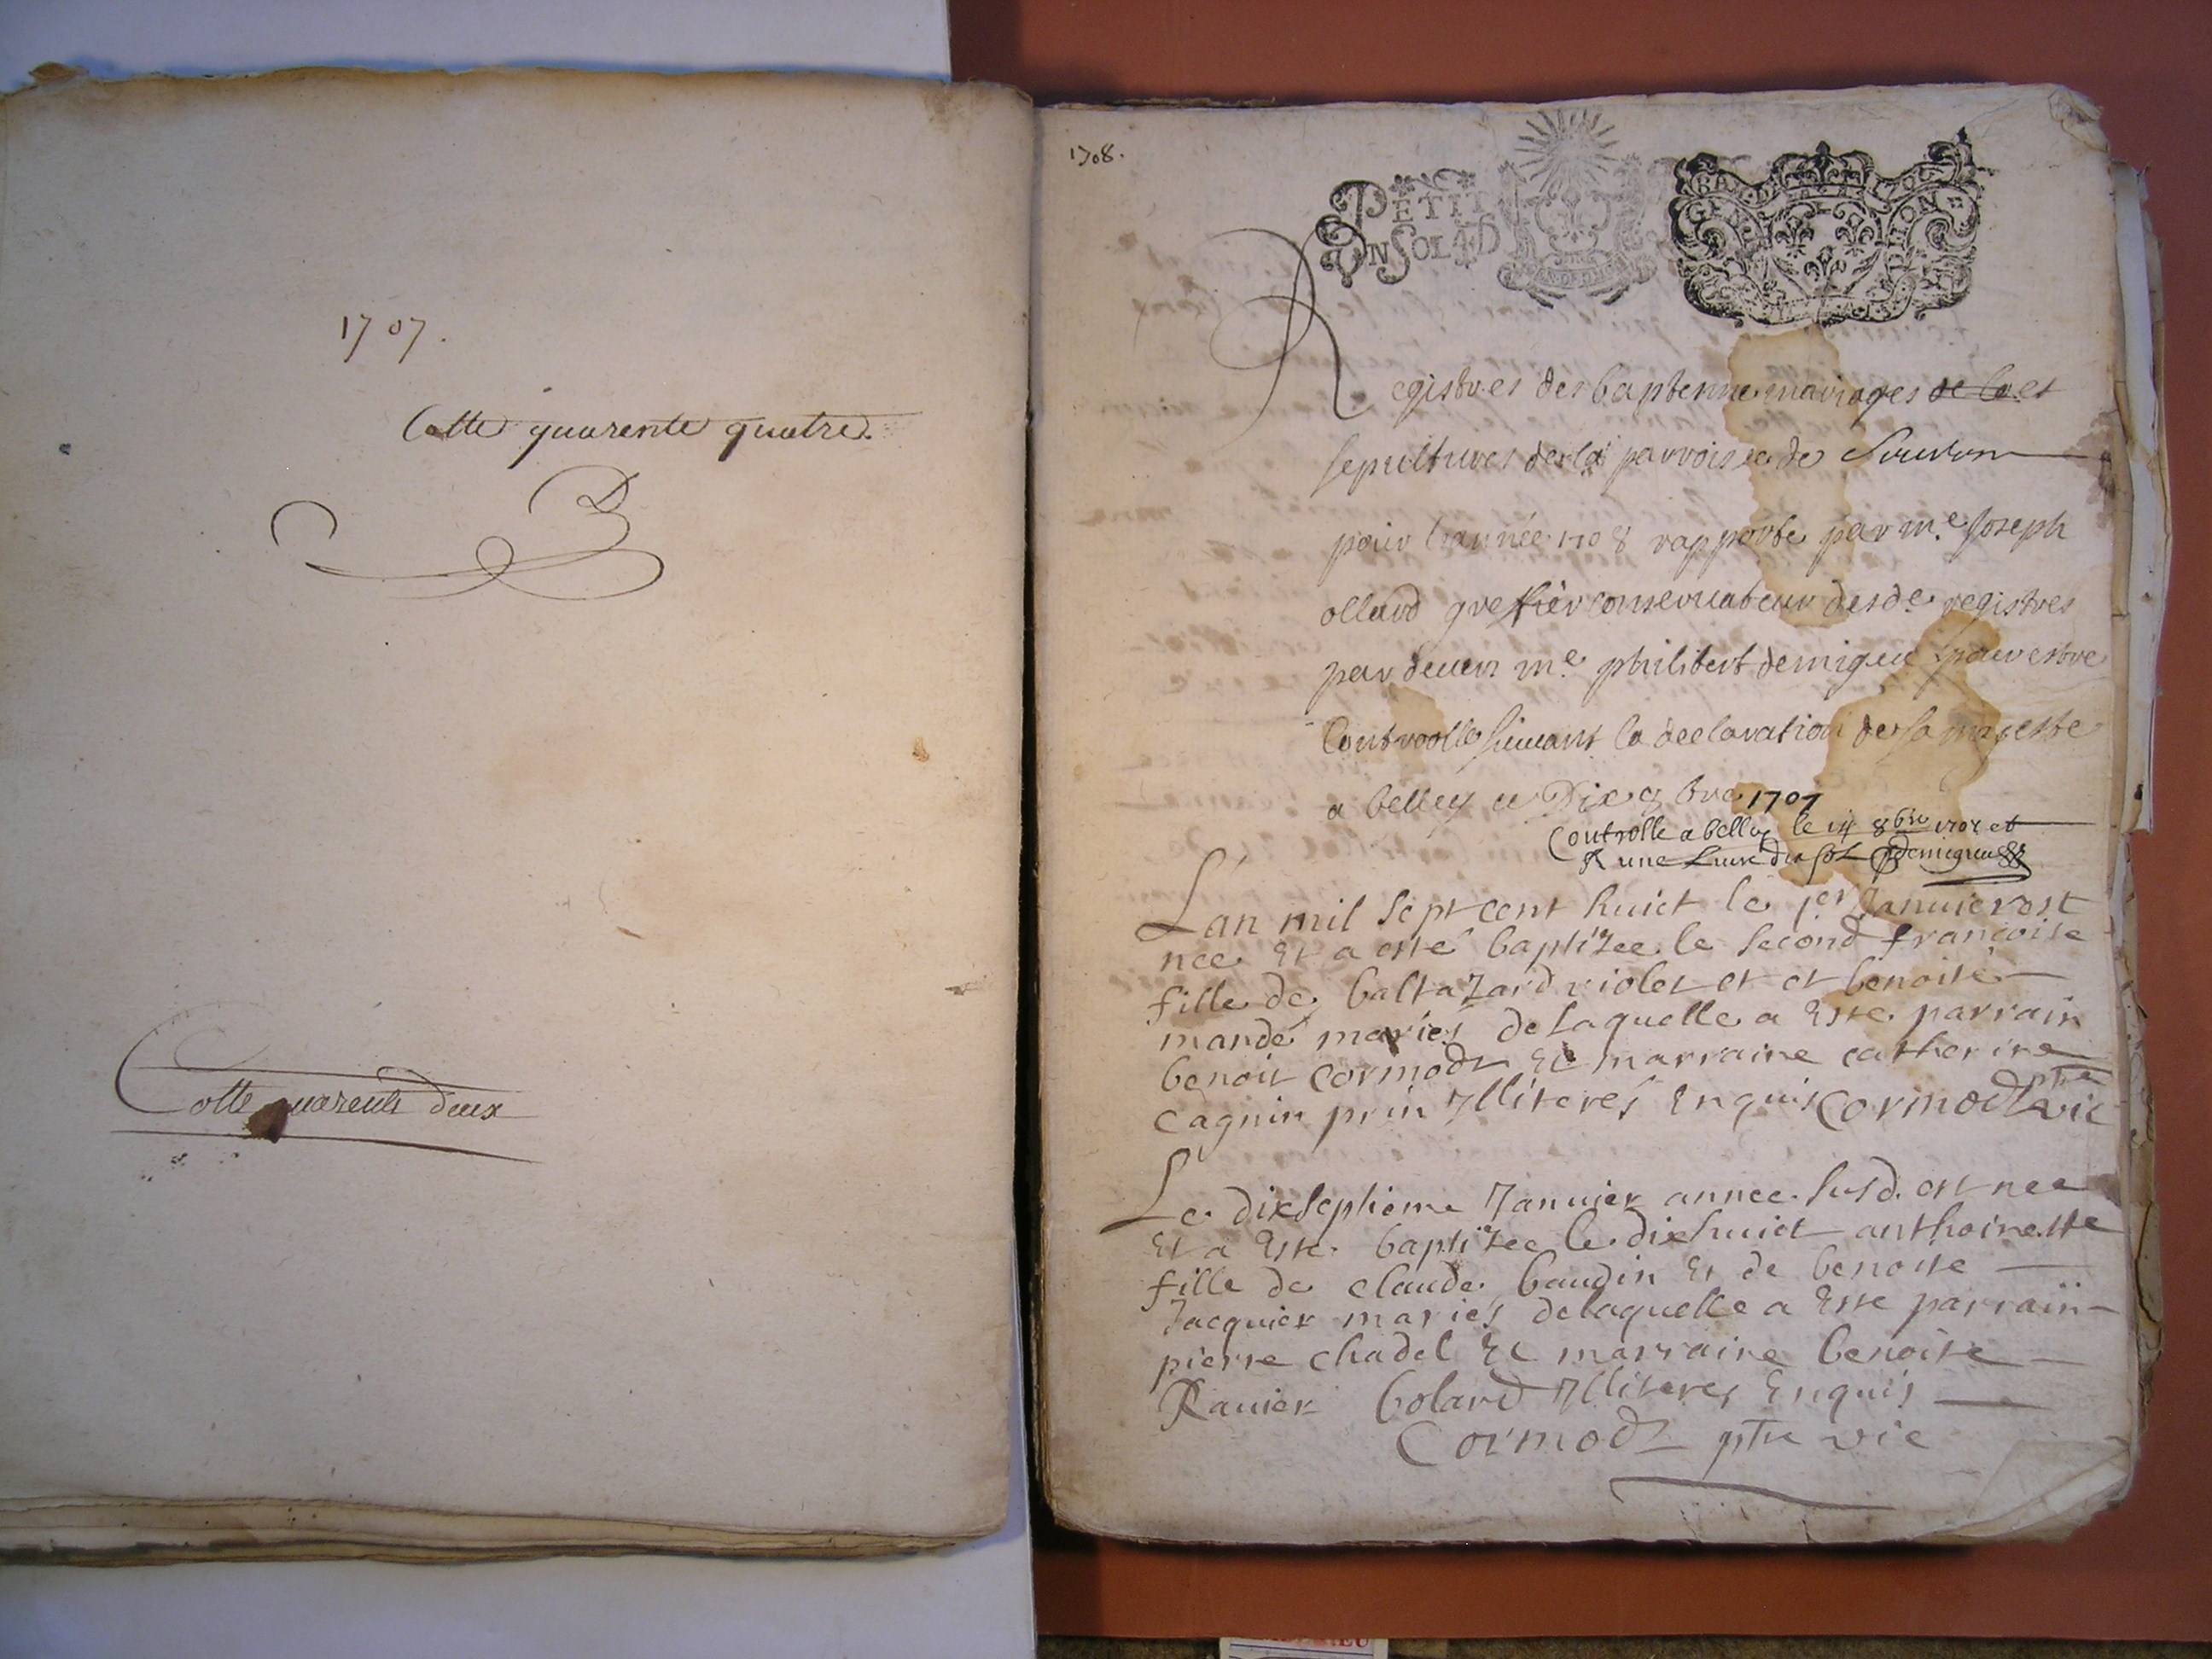 1707.
Cotte quarente quatre.
Cotte quarente deux
1708.
PETIT
UN SOL 4 D
GEN DIHON
Registres des baptemme mariages de la et
sepultures de la parroisse de Souvon
pour l'année 1708 rapporte par me Joseph
ollard greffier conservateur desde registres
par devers me philibert demigieu pour estre
Controolle suivant la declaration de sa majeste
a belley ce Dix 9bre 1707
Controlle a belley le 14 8bre 1707 et
R une livre dix sol Demigieu
L'an mil sept cent huict le 1er Januier est
nee Et a esté baptizee le second francoise
fille de baltazard violet et et benoite
mande mariés de laquelle a Este parrain
benoit Cormod Et marraine catherine
Cagnin prin Illiteres Enquis Cormod ptre vic
Le dixseptieme Januier annee susd. est nee
Et a Este baptizee le dixhuict anthoinette
fille de claude baudin Et de benoite
Jacquier mariés de laquelle a Este parrain
pierre chadel Et marraine benoite
Ranier bolard Illiteres Enquis
Cormod ptre vic